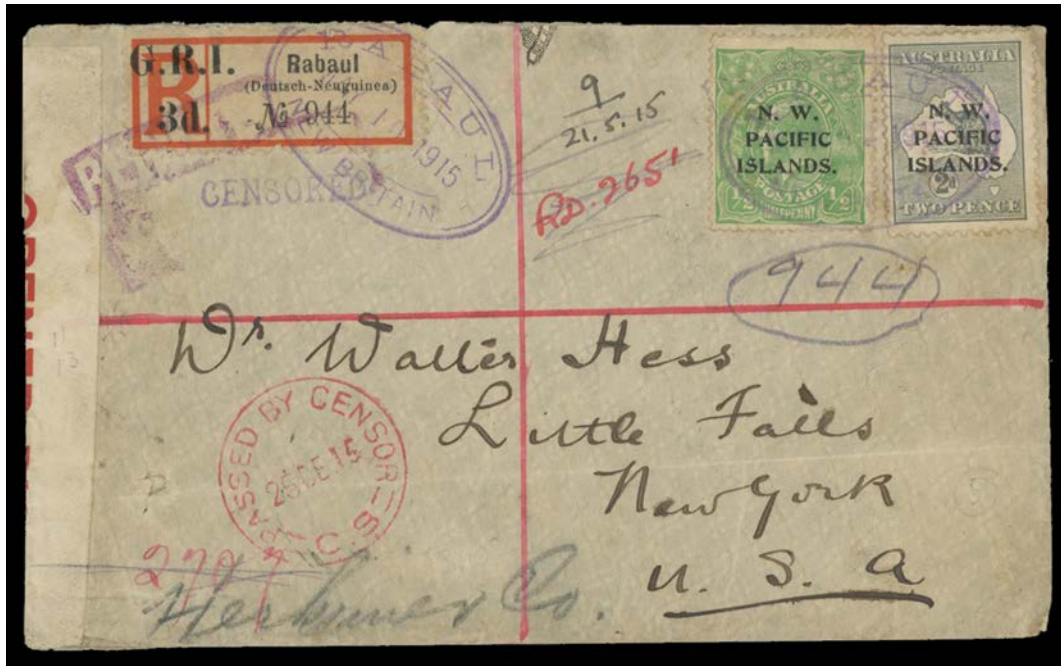 G.R.I.
3d.
R
Rabaul
(Deutsch-Neuguinea)
№ 944
RABAUL
1915
NEW BRITAIN
CENSORED
9
21.5.15
RD.265
AUSTRALIA
N. W.
PACIFIC
ISLANDS.
½
POSTAGE
HALFPENNY
½
AUSTRALIA
POSTAGE
N. W.
PACIFIC
ISLANDS.
2d
TWO PENCE
944
OPENED
Dr. Walter Hess
Little Falls
New York
U. S. A
PASSED BY CENSOR
DE 15
Herkimer Co.